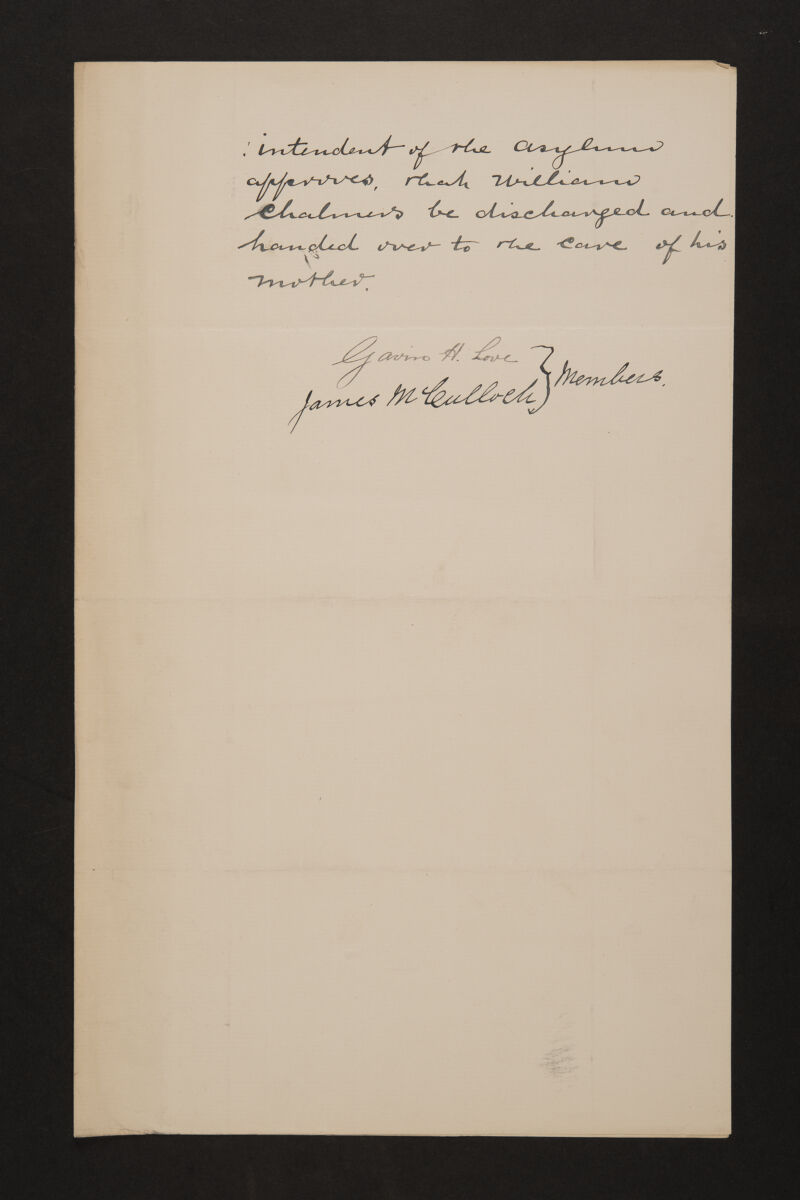 :intendent of the asylum
approves, that William
Chalmers be discharged and
handed over to the care of his
mother.
Gavin H. Love
James McCulloch } Members.